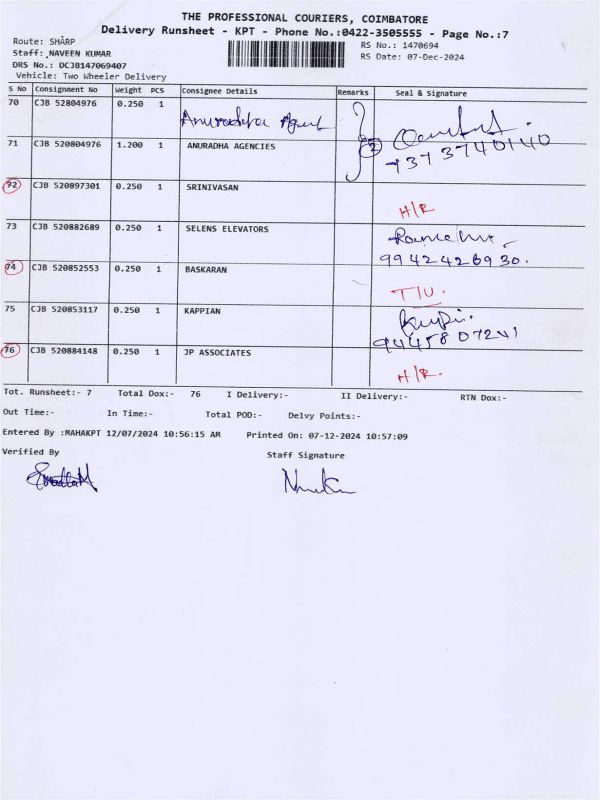 THE PROFESSIONAL COURIERS, COIMBATORE
Delivery Runsheet - KPT - Phone No.:0422-3505555 - Page No.:7
Route: SHARP
RS No.: 1470694
Staff: NAVEEN KUMAR
RS Date: 07-Dec-2024
DRS No.: DCJB147069407
Vehicle: Two Wheeler Delivery
S No Consignment No Weight PCS Consignee Details Remarks Seal & Signature
70 CJB 52804976 0.250 1 Anuradha Agent
71 CJB 520804976 1.200 1 ANURADHA AGENCIES 2 7373740140
72 CJB 520897301 0.250 1 SRINIVASAN H/R
73 CJB 520882689 0.250 1 SELENS ELEVATORS 9942426930.
74 CJB 520852553 0.250 1 BASKARAN T/U.
75 CJB 520853117 0.250 1 KAPPIAN 9445807241
76 CJB 520884148 0.250 1 JP ASSOCIATES H/R.
Tot. Runsheet:- 7 Total Dox:- 76 I Delivery:- II Delivery:- RTN Dox:-
Out Time:- In Time:- Total POD:- Delvy Points:-
Entered By :MAHAKPT 12/07/2024 10:56:15 AM Printed On: 07-12-2024 10:57:09
Verified By Staff Signature